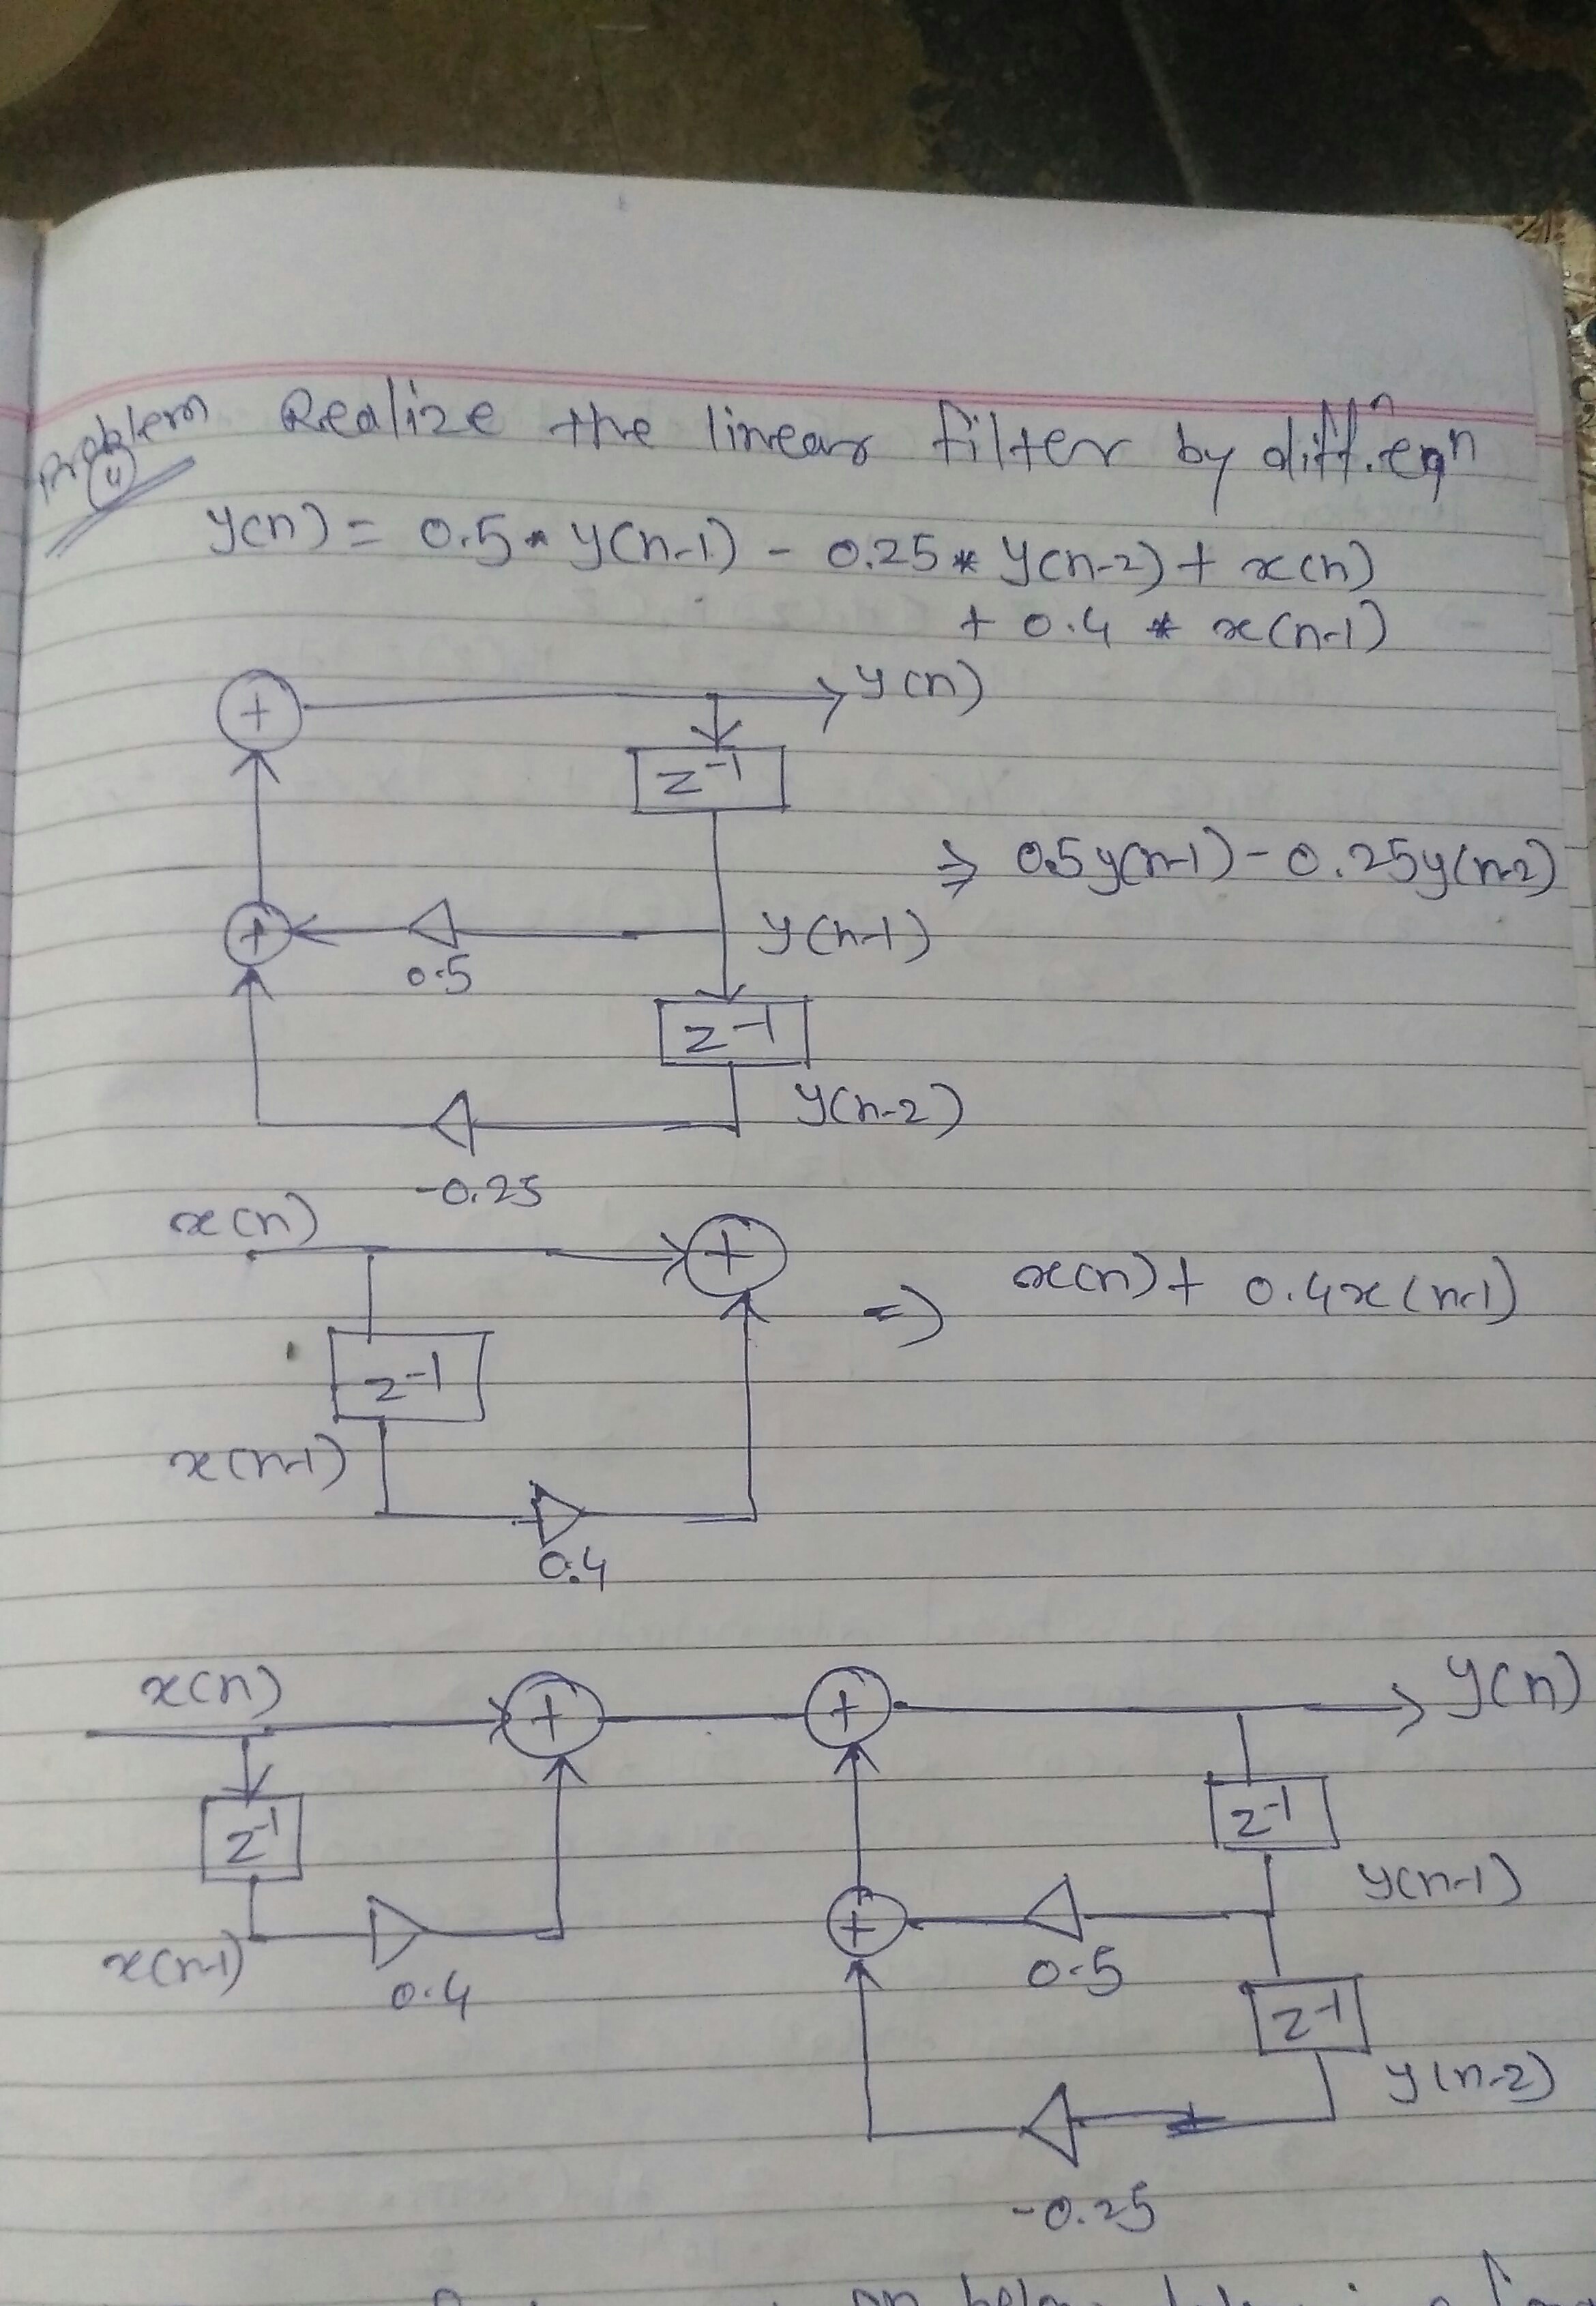 Problem Realize the linear filter by diff. eqn
y(n) = 0.5 * y(n-1) - 0.25 * y(n-2) + x(n)
+ 0.4 * x(n-1)
+ y(n)
z⁻¹
⇒ 0.5y(n-1) - 0.25y(n-2)
+ y(n-1)
0.5
z⁻¹
y(n-2)
-0.25
x(n)
+
⇒ x(n) + 0.4x(n-1)
z⁻¹
x(n-1)
0.4
x(n) + + y(n)
z⁻¹ z⁻¹
y(n-1)
+
x(n-1) 0.4 0.5
z⁻¹
y(n-2)
-0.25